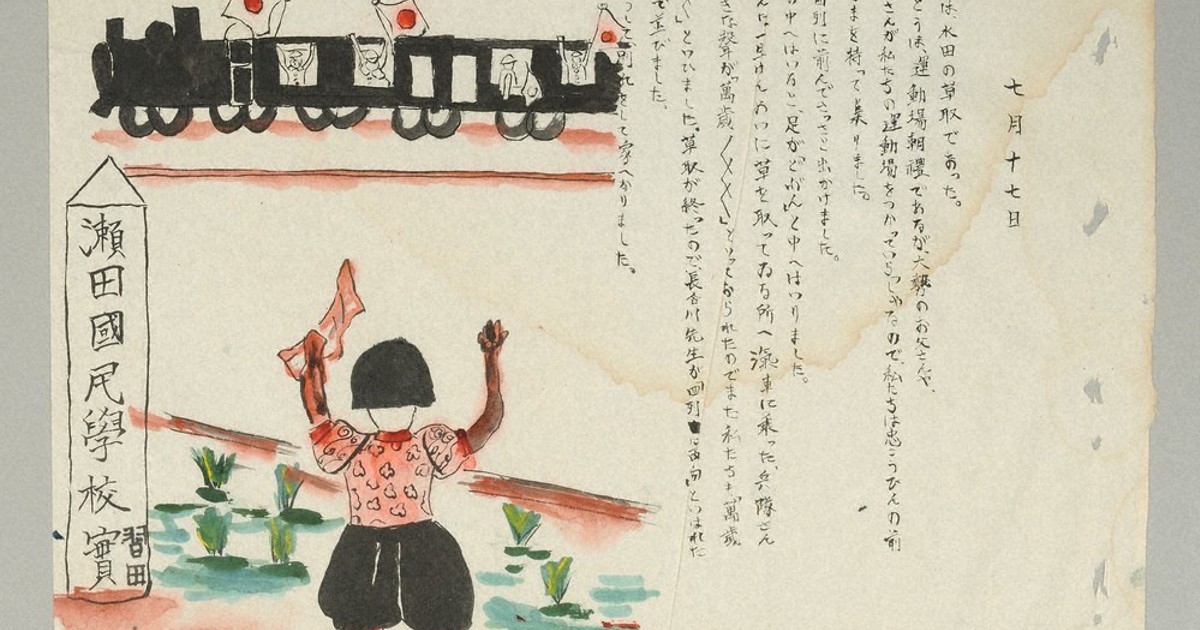 七月十七日
は、水田の草取であった。
とうは、運動場朝禮であるが、大勢のお父さんや、
さんが私たちの運動場をつかっていらっしゃるので、私たちは忠こうひの前
まを持って集りました。
四列に前んでさっさと出かけました。
の中へはいると、足が「どぶん」と中へはいりました。
けんめいに草を取ってゐる所へ汽車に乗った、兵隊さん
きな聲が「萬歳〳〵〳〵」といってゐられたのでまた私たちも「萬歳
〵」といひました。草取が終ったので、長谷川先生が四列に といはれた
で並びました。
って、別れをして家へかへりました。
瀬田國民學校實習田